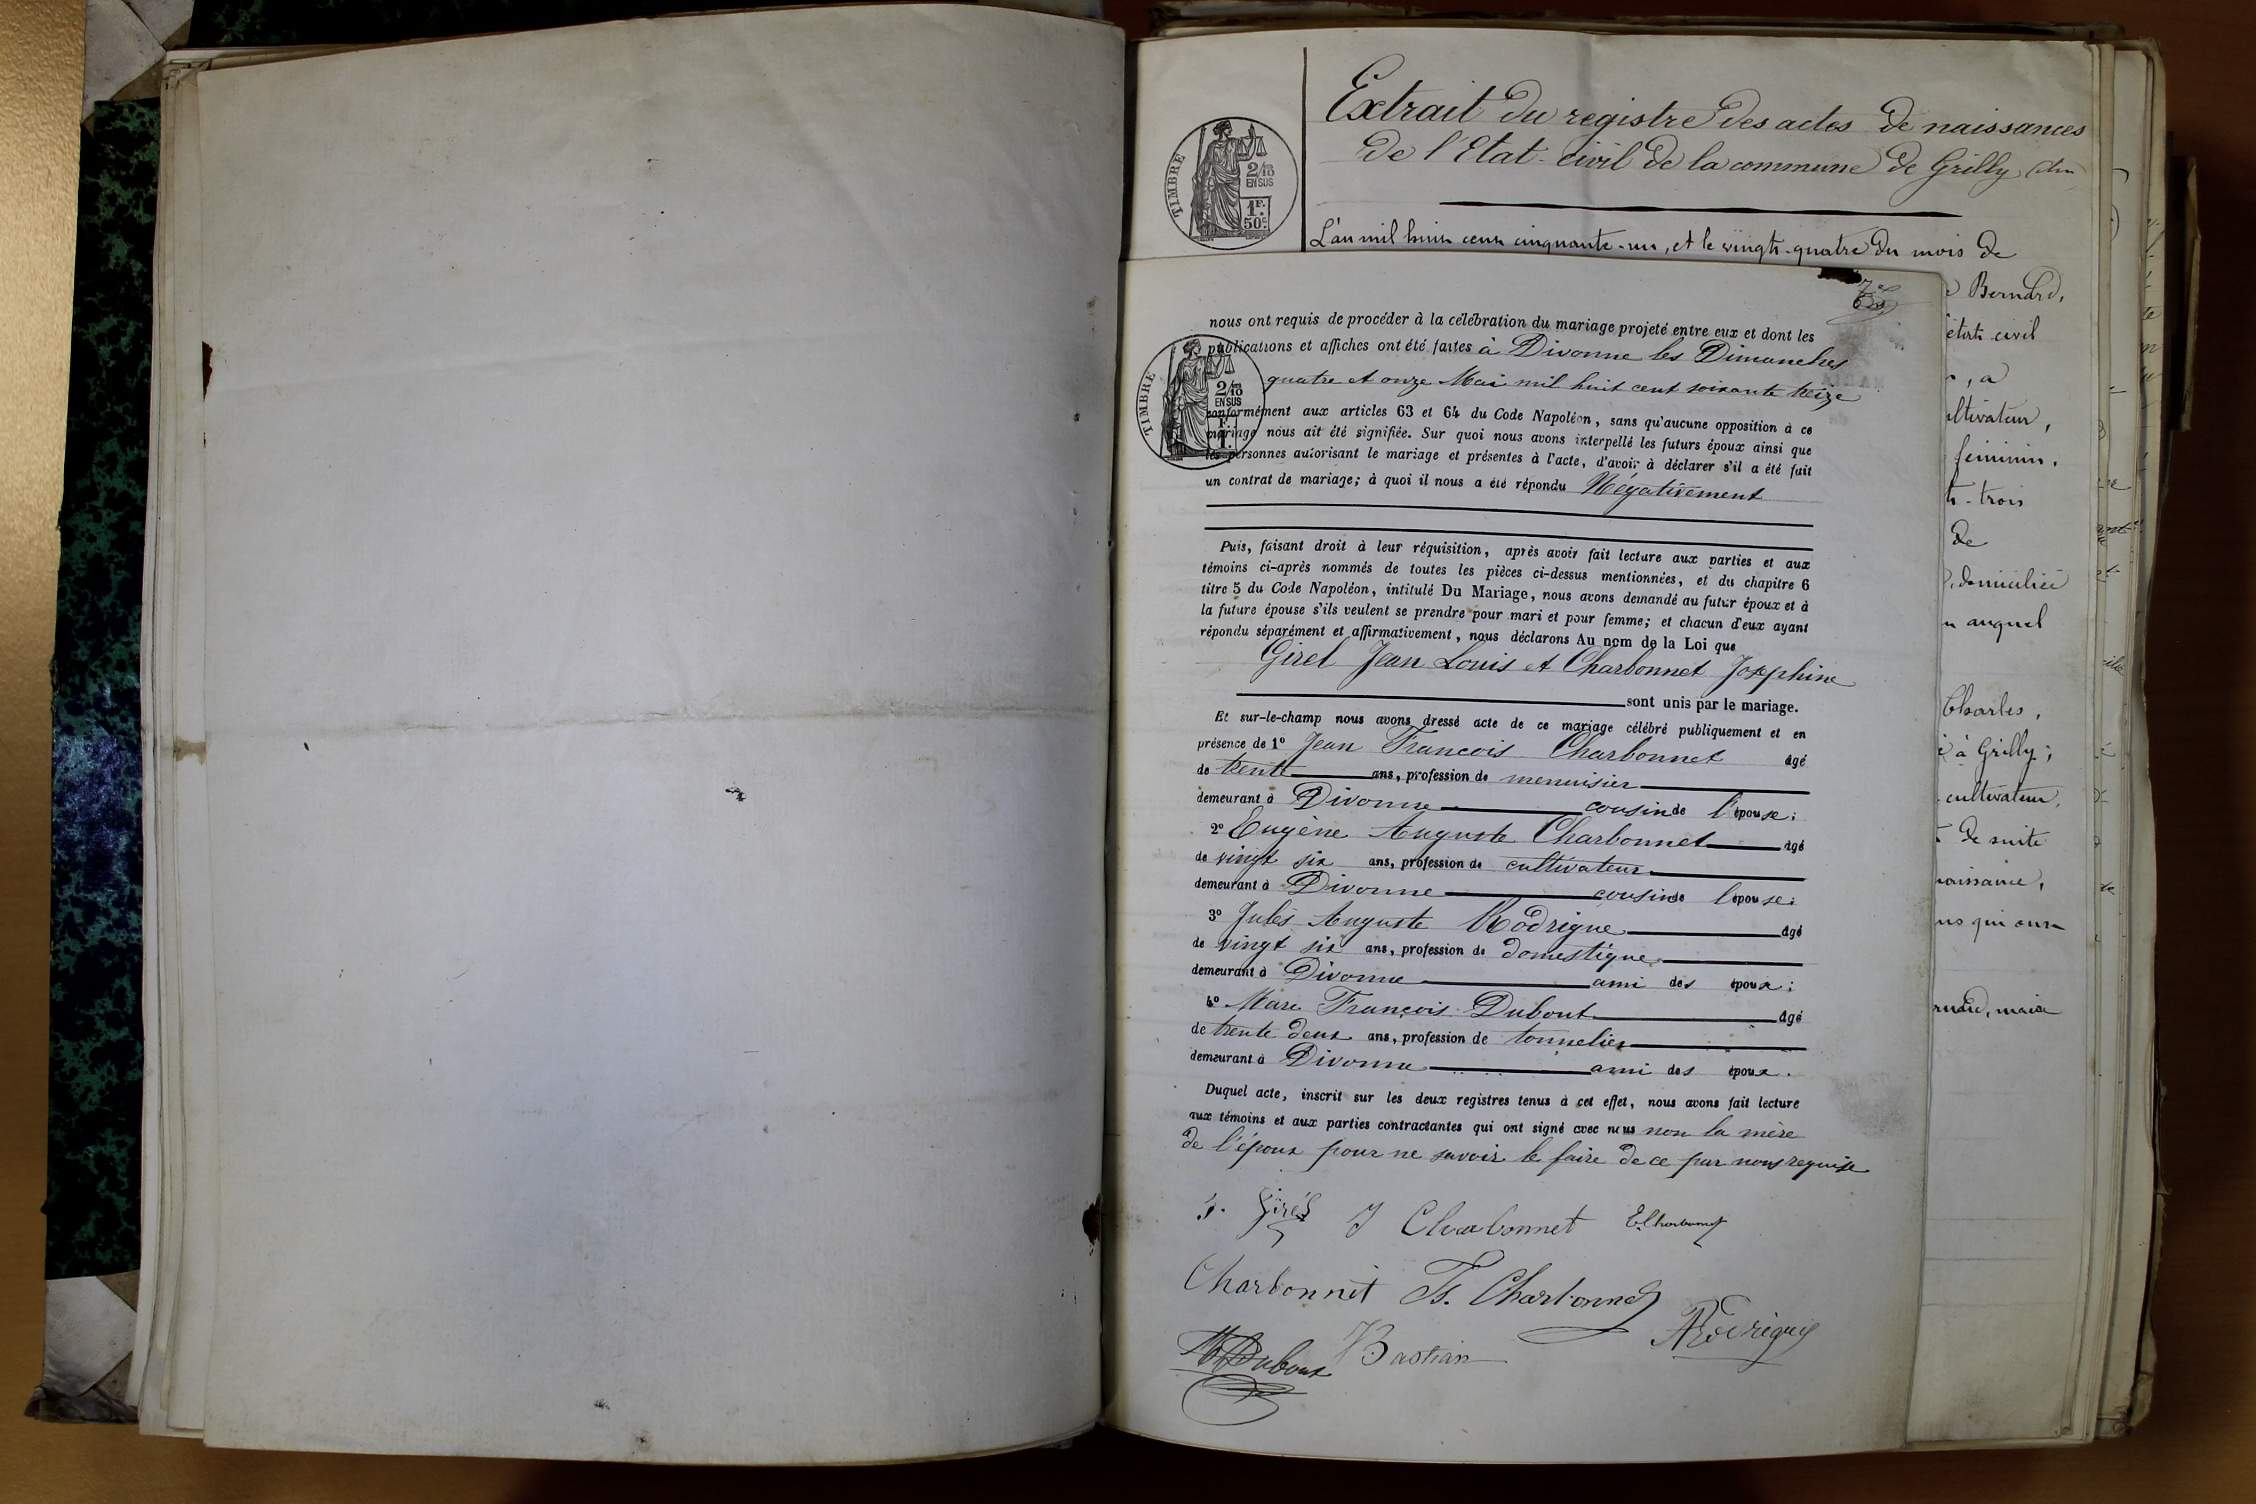 Extrait du registre des actes de naissances
de l'Etat-civil de la commune de Grilly (Ain
TIMBRE
2/10
EN SUS
1F.
50c.
L'an mil huit cent cinquante-un, et le vingt-quatre du mois de
Bernard,
état civil
, a
ultivateur,
féminin.
t-trois
de
, domicilié
n auquel
Charles,
é à Grilly;
cultivateur,
de suite
naissance,
ns qui ont
maire
nous ont requis de procéder à la célébration du mariage projeté entre eux et dont les
publications et affiches ont été faites à Divonne les Dimanches
quatre et onze Mai mil huit cent soixante treize
TIMBRE
2/10
EN SUS
F.
1.
conformément aux articles 63 et 64 du Code Napoléon, sans qu'aucune opposition à ce
mariage nous ait été signifiée. Sur quoi nous avons interpellé les futurs époux ainsi que
les personnes autorisant le mariage et présentes à l'acte, d'avoir à déclarer s'il a été fait
un contrat de mariage; à quoi il nous a été répondu Négativement
Puis, faisant droit à leur réquisition, après avoir fait lecture aux parties et aux
témoins ci-après nommés de toutes les pièces ci-dessus mentionnées, et du chapitre 6
titre 5 du Code Napoléon, intitulé Du Mariage, nous avons demandé au futur époux et à
la future épouse s'ils veulent se prendre pour mari et pour femme; et chacun d'eux ayant
répondu séparément et affirmativement, nous déclarons Au nom de la Loi que
Girel Jean Louis et Charbonnet Josephine
sont unis par le mariage.
Et sur-le-champ nous avons dressé acte de ce mariage célébré publiquement et en
présence de 1º Jean Francois Charbonnet âgé
de trente ans, profession de menuisier
demeurant à Divonne cousin de l'épouse;
2º Eugène Auguste Charbonnet âgé
de vingt six ans, profession de cultivateur
demeurant à Divonne cousin de l'épouse;
3º Jules Auguste Rodrigue âgé
de vingt six ans, profession de domestique
demeurant à Divonne ami des époux;
4º Marc François Dubout âgé
de trente deux ans, profession de tonnelier
demeurant à Divonne ami des époux.
Duquel acte, inscrit sur les deux registres tenus à cet effet, nous avons fait lecture
aux témoins et aux parties contractantes qui ont signé avec nous non la mère
de l'époux pour ne savoir le faire de ce par nous requise
J. Girél J Charbonnet E. Charbonnet
Charbonnet Fs. Charbonnet
A Rodrigue
M Dubout Bastian